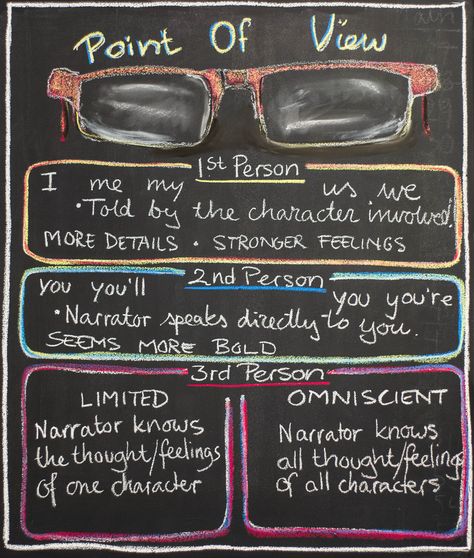 Point Of View
1st Person
I me my us we
• Told by the character involved
MORE DETAILS • STRONGER FEELINGS
2nd Person
you you'll you you're
• Narrator speaks directly to you.
SEEMS MORE BOLD
3rd Person
LIMITED
Narrator knows
the thought/feelings
of one character
OMNISCIENT
Narrator knows
all thought/feelings
of all characters